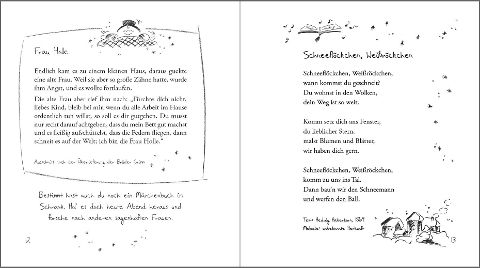 Frau Holle
Endlich kam es zu einem kleinen Haus, daraus guckte
eine alte Frau. Weil sie aber so große Zähne hatte, wurde
ihm Angst, und es wollte fortlaufen.
Die alte Frau aber rief ihm nach: „Fürchte dich nicht,
liebes Kind, bleib bei mir, wenn du alle Arbeit im Hause
ordentlich tun willst, so soll es dir gutgehen. Du musst
nur recht darauf achtgeben, dass du mein Bett gut machst
und es fleißig aufschüttelst, dass die Federn fliegen, dann
schneit es auf der Welt; ich bin die Frau Holle.“
der Brüder Grimm
Bestimmt hast auch du noch ein Märchenbuch im
Schrank. Hol es doch heute Abend heraus und
forsche nach anderen sagenhaften Frauen.
2
Schneeflöckchen, Weißröckchen
Schneeflöckchen, Weißröckchen,
wann kommst du geschneit?
Du wohnst in den Wolken,
dein Weg ist so weit.
Komm setz dich ans Fenster,
du lieblicher Stern,
malst Blumen und Blätter,
wir haben dich gern.
Schneeflöckchen, Weißröckchen,
komm zu uns ins Tal.
Dann bau'n wir den Schneemann
und werfen den Ball.
Text: Hedwig Haberkern,
Melodie: unbekannte Herkunft
13